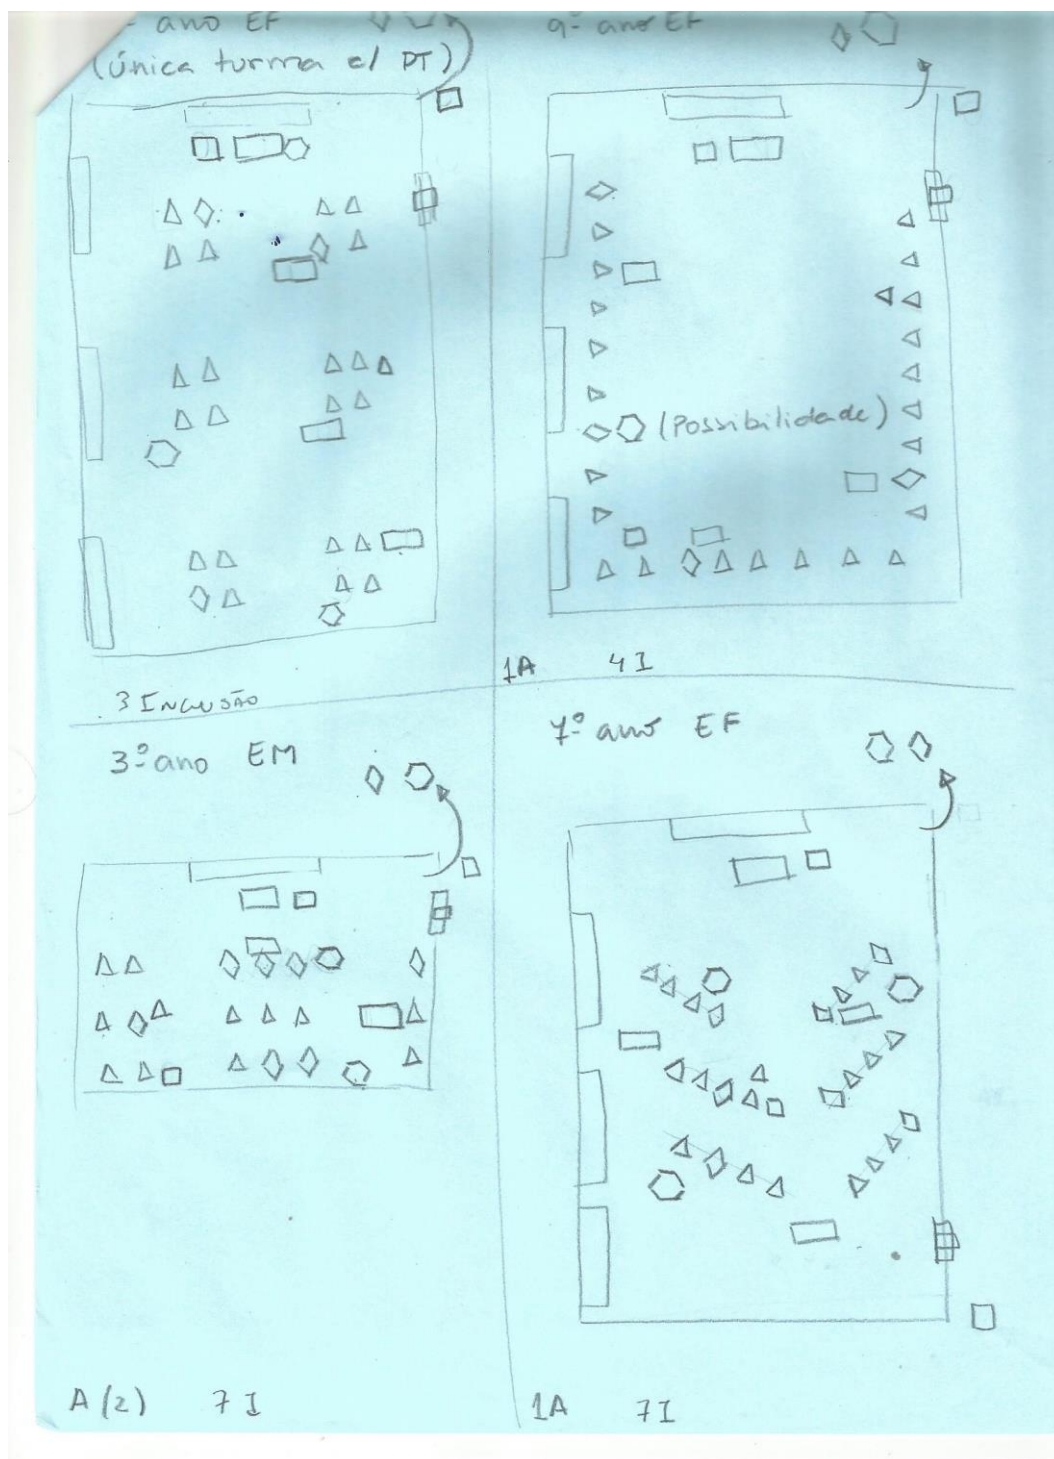 ano EF
(única turma c/ PT)
3 INCLUSÃO
9º ano EF
(Possibilidade)
1A 4I
3º ano EM
A (2) 7I
7º ano EF
1A 7I